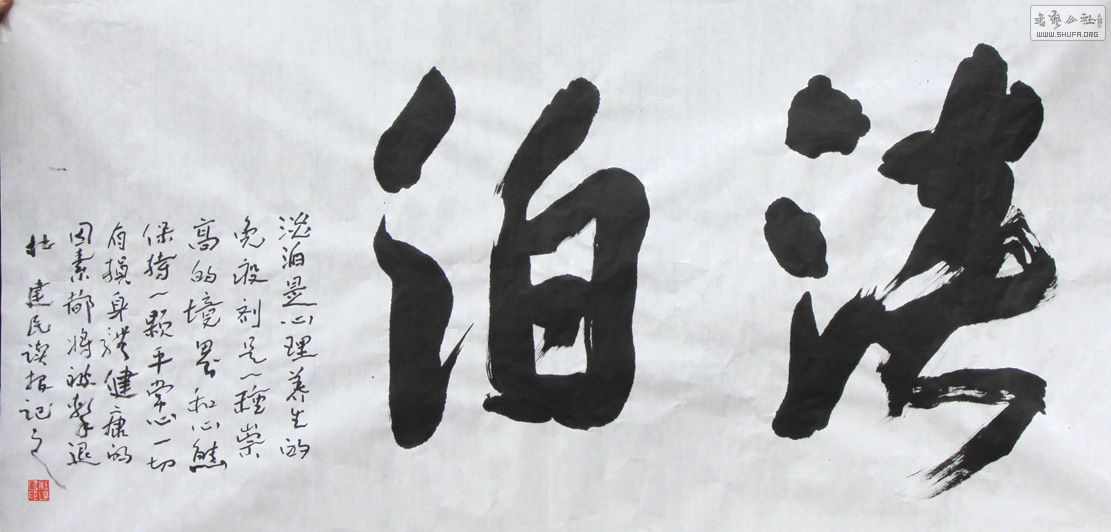 淡泊
淡泊是心理养生的
免疫剂是一种崇
高的境界和心态
保持一颗平常心一切
有损身体健康的
因素都将被击退
杜建民读报记之
书艺公社
WWW.SHUFA.ORG